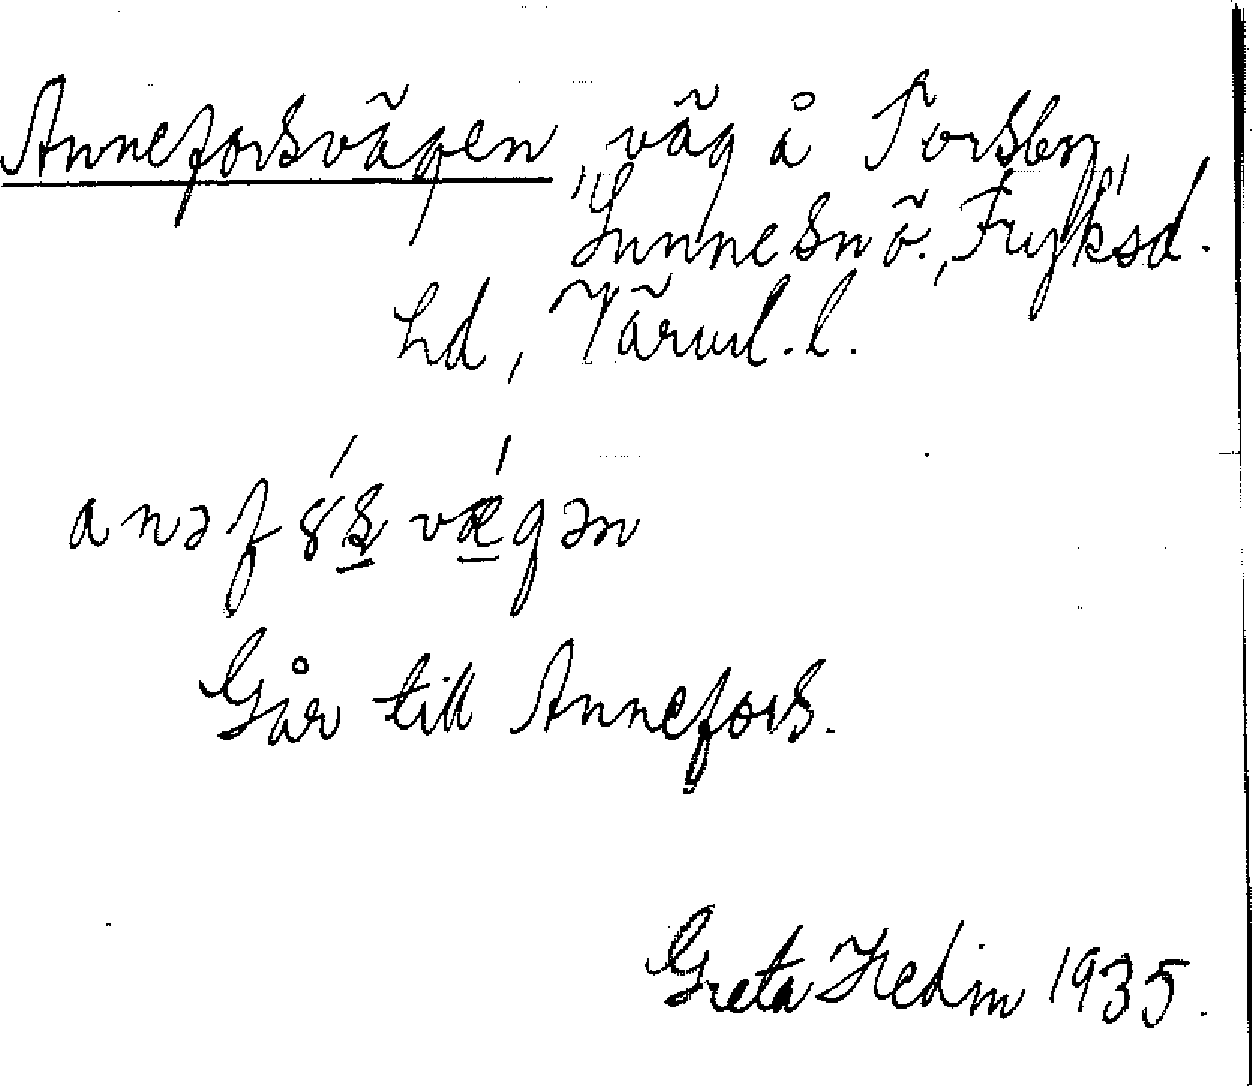 Anneforsvägen, väg å Torsby,
Sunne sn ö., Fryksd.
hd, Värml. l.
Går till Annefors.
Greta Hedin 1935.